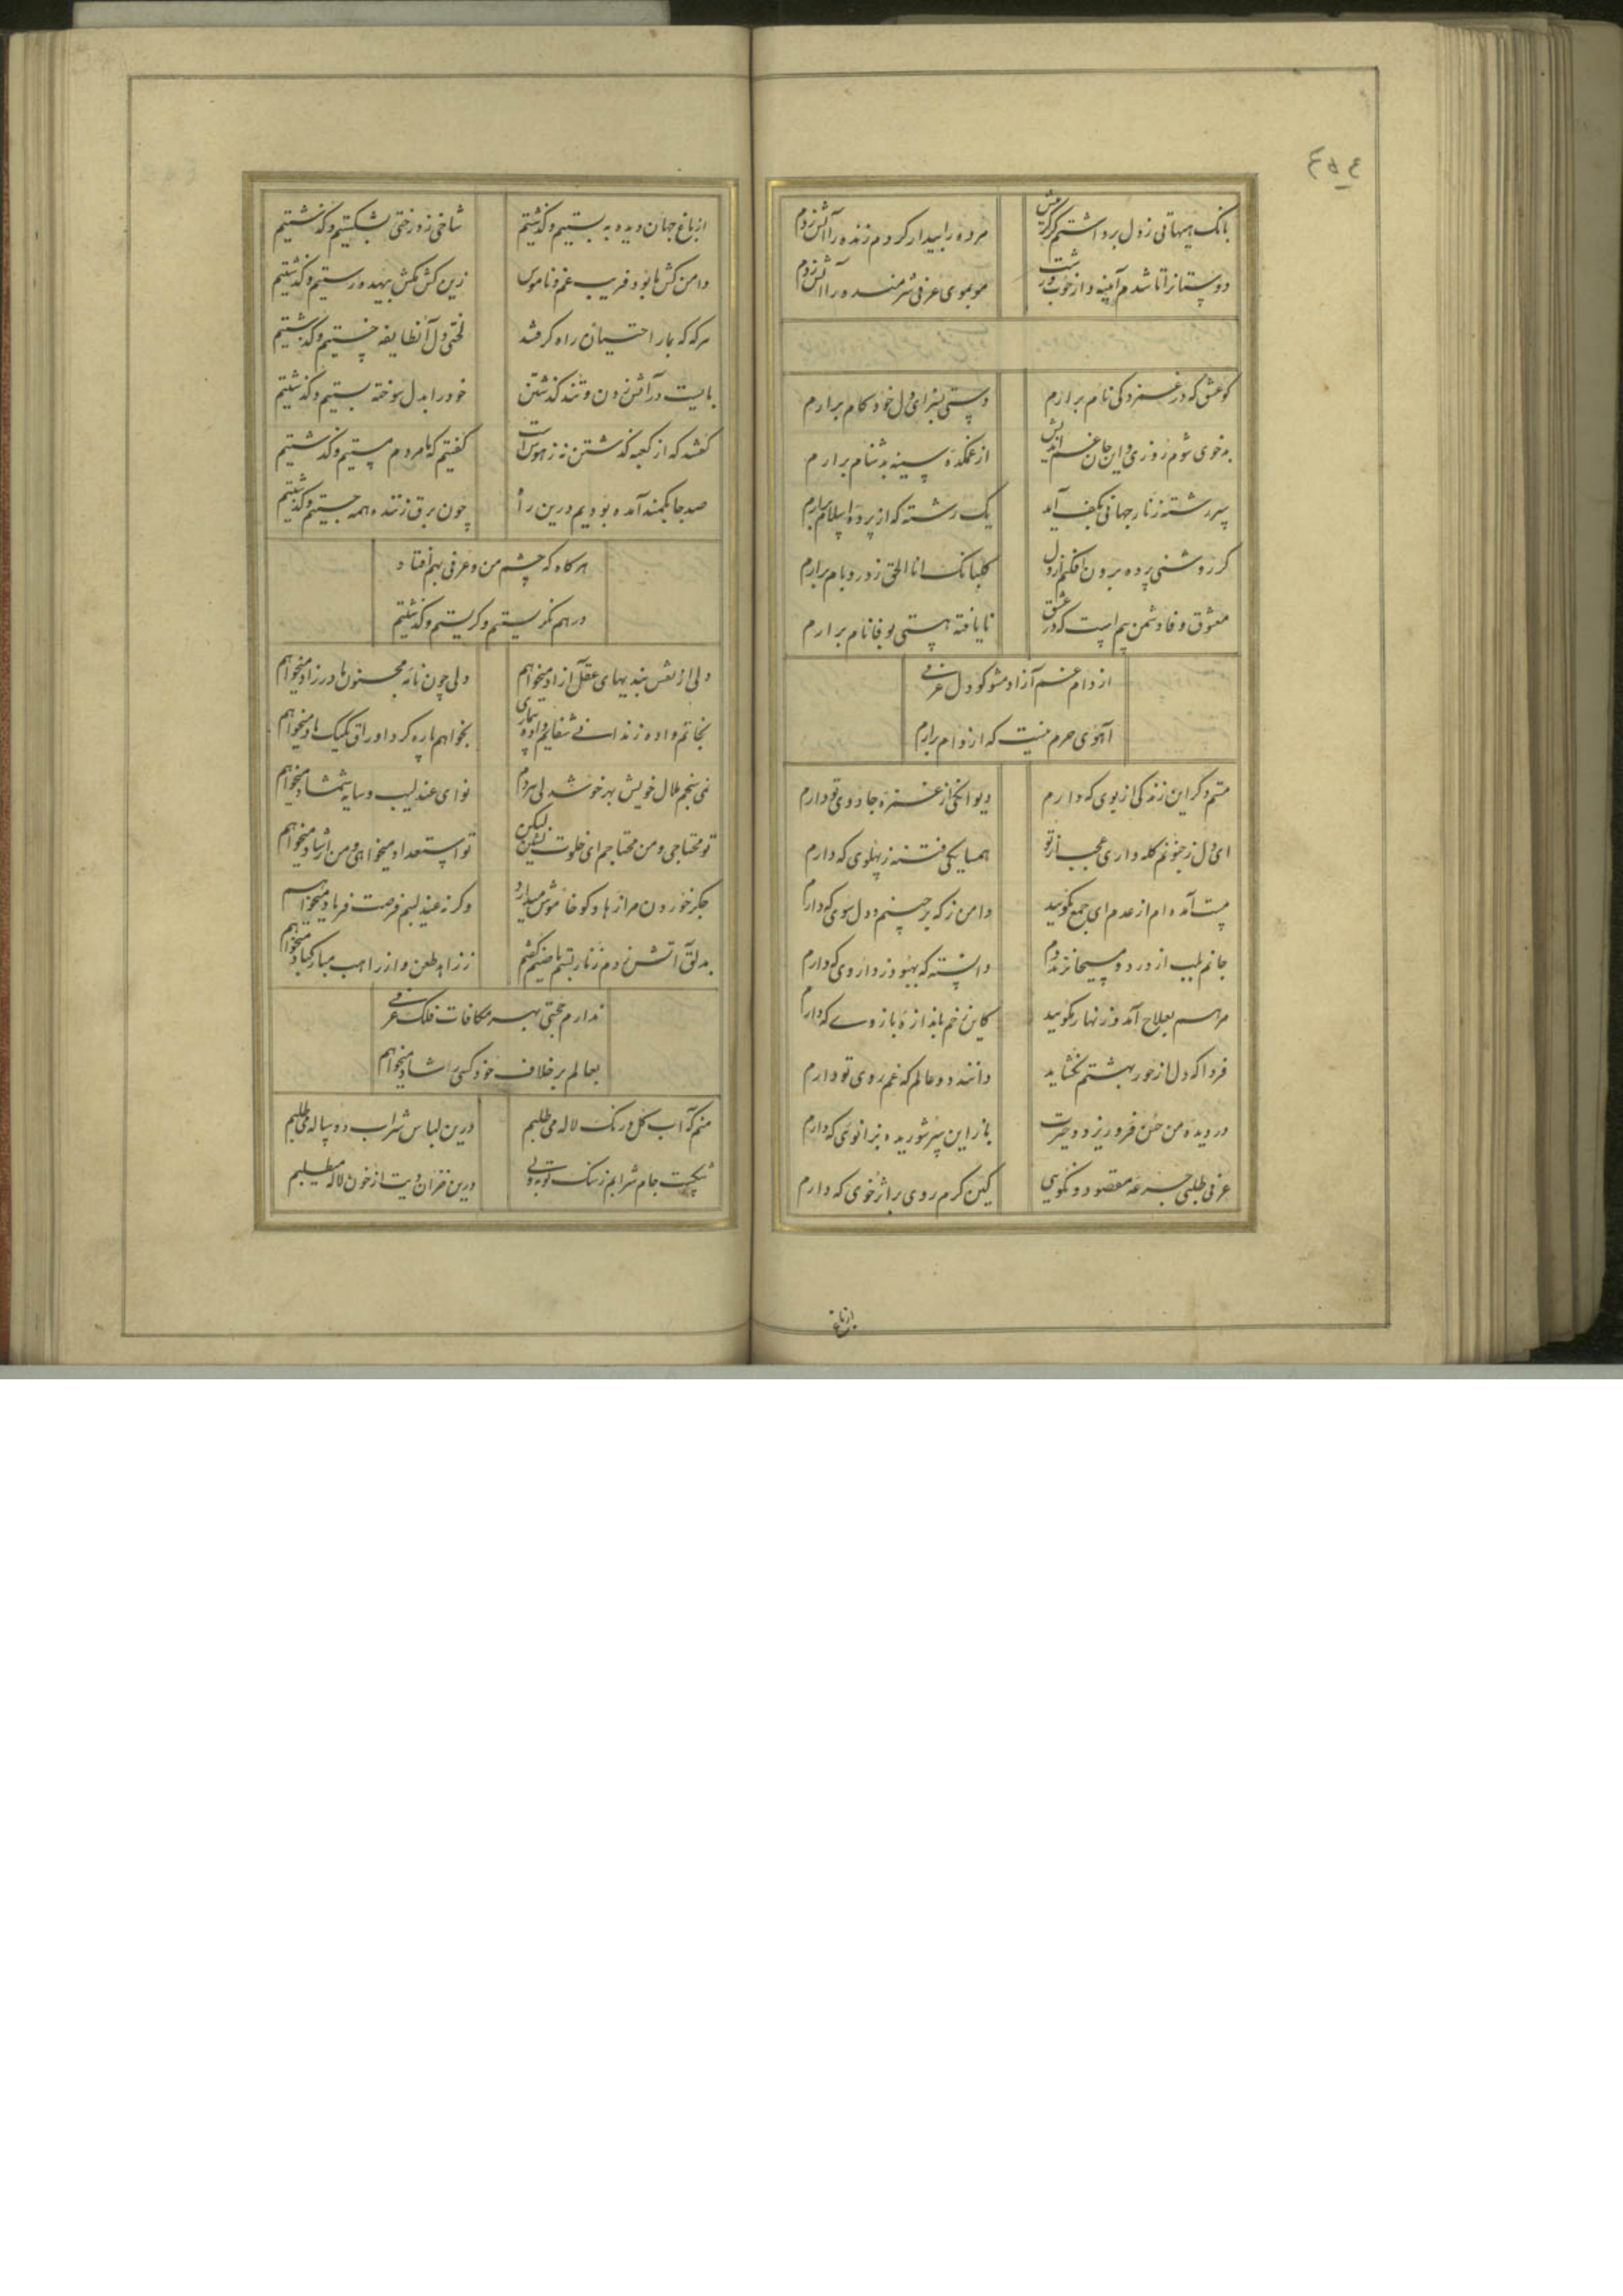 ٤٥٤
بانک هیهاتی ز دل برداشتم کز گرمیش مرده را بیدار کردم زنده را آتش زدم
دوستانرا تا شدم آیینه و از خوب و زشت موبموی عرفی شرمنده را آتش زدم
کو عشق که در غمزدگی نام برآرم دستی بسزای دل خودکام برآرم
بدخوی شوم روزی و این جان غم اندیش از غمکده سینه بدشنام برآرم
سررشته زنار جهانی بکف آید یک رشته که از پرده اسلام برآرم
گر روشنی پرده برون افکنم از دل گلبانک انا الحق ز در و بام برآرم
معشوق وفا دشمن بیم است که در عشق نایافته هستی بوفا نام برآرم
از دام غم آزاد مشو کو دل عرفی
آهوی حرم نیست که از دام برآرم
منم و کر این زندگی از بوی که دارم دیوانگی از غمزه جادوی تو دارم
ای دل ز جنونم کله داری عجب از تو همسایکی فتنه ز پهلوی که دارم
مست آمده ام از عدم ای جمع بگویید دامن ز که برچینم و دل سوی که دارم
جانم بلب از درد و مسیحا نزند دم دانسته که بهبود ز داروی که دارم
مرهم بعلاج آمد و زنهار مگویید کاین زخم باندازه بازوی که دارم
فردا که دل از حور بهشتم نگشاید دانند دو عالم که غم روی تو دارم
در دیده من خون فرو ریزد و حیرت باز این سر شوریده بزانوی که دارم
عرفی طلبی جرعه مقصود و نگویی کین گرم روی بر اثر خوی که دارم
از باغ
از باغ جهان دیده به بستیم و گذشتیم شاخی ز درختی بشکستیم و گذشتیم
دامن کش ما بود فریب غم و ناموس زین کش مکش بیهده رستیم و گذشتیم
هر که که بما راحتیان راه گرفتند لختی دل آنطایفه خستیم و گذشتیم
بایست در آتش زدن و تند گذشتن خود را بدل سوخته بستیم و گذشتیم
گفتند که از کعبه گذشتن نه ز هوش است گفتیم که ما مردم مستیم و گذشتیم
صد جا بکمند آمده بودیم درین راه چون برق زتنده همه جستیم و گذشتیم
هرگاه که چشم من و عرفی بهم افتاد
در هم نگریستیم و گریستیم و گذشتیم
دلی از نقش بندیهای عقل آزاد میخواهم ولی چون نامه مجنون مادرزاد میخواهم
نجاتم داده زندانی شفایم داده بیماری بخواهم پاره کرد اوراق یکیک باد میخواهم
نمی سنجم ملال خویش بهر خوشدلی مردم نوای عندلیب و سایه شمشاد میخواهم
تو محتاجی و من محتاجم ای خلوت نشین لیکن تو استعداد میخواهی و من ارشاد میخواهم
جگر خوردن مرا از یاد کو خاموش میدارد وگرنه عندلیبم فرصت فریاد میخواهم
بدلق آتش زدم زنار بستم باضنم گشتم ز زاهد طعن و از راهب مبارکباد میخواهم
ندارم حجتی بهر مکافات فلک عرفی
بعالم بر خلاف خود کسی را شاد میخواهم
منم که آب گل و رنک لاله می طلبم درین لباس شراب دو پیاله می طلبم
شکست جام شرابم ز سنک توبه ولی درین خزان دیت از خون لاله میطلبم